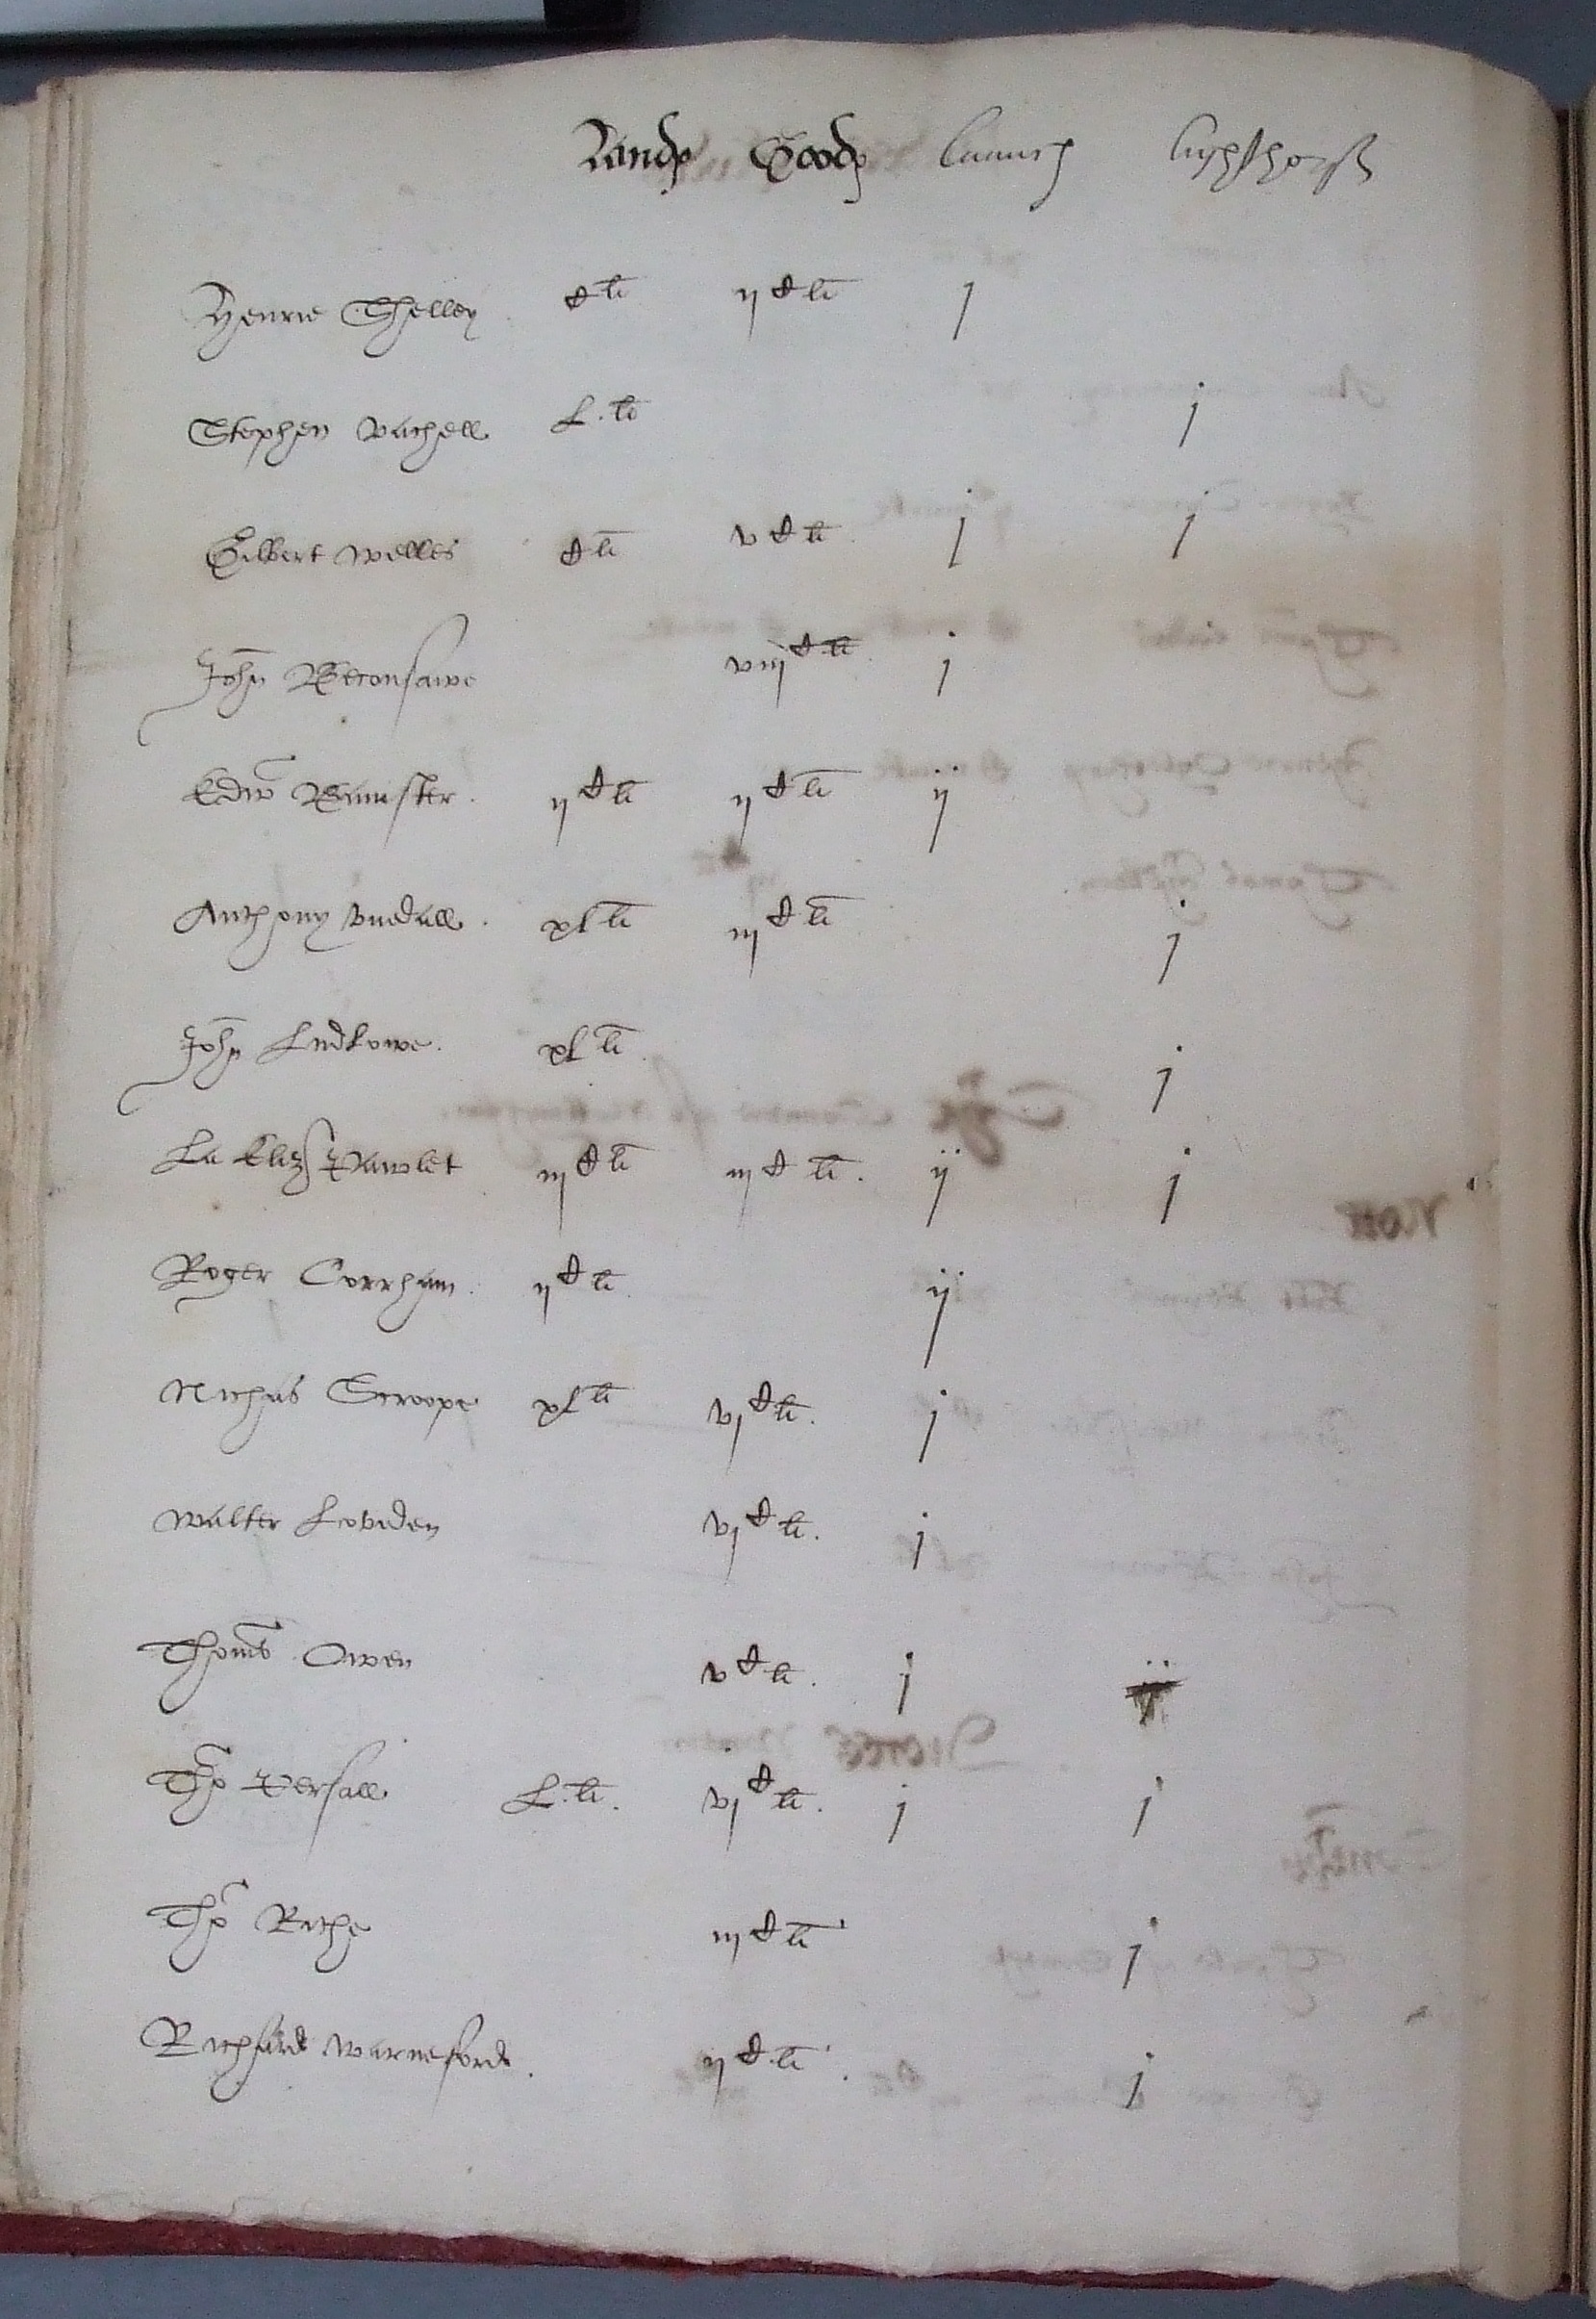 Landes Goodes launces lighthorss
Henrie Shelley Cli ijCli j
Stephen Vachell L.li j
Gilbert Welles Cli vCli j j
John Beconsawe viijCli j
Edw Banister ijCli ijCli ij
Anthony Uvedall xlli iijCli j
John Ludlowe xlli j
La Eliz Pawlet iijCli iijCli ij j
Roger Corrham ijCli ij
Nichas Scroope xlli vjCli j
Walter Loveden vjCli j
Thomas Owen vCli j
Tho Persall L.li vjCli j j
Tho Riche iijCli j
Richard Warneforde ijCli j